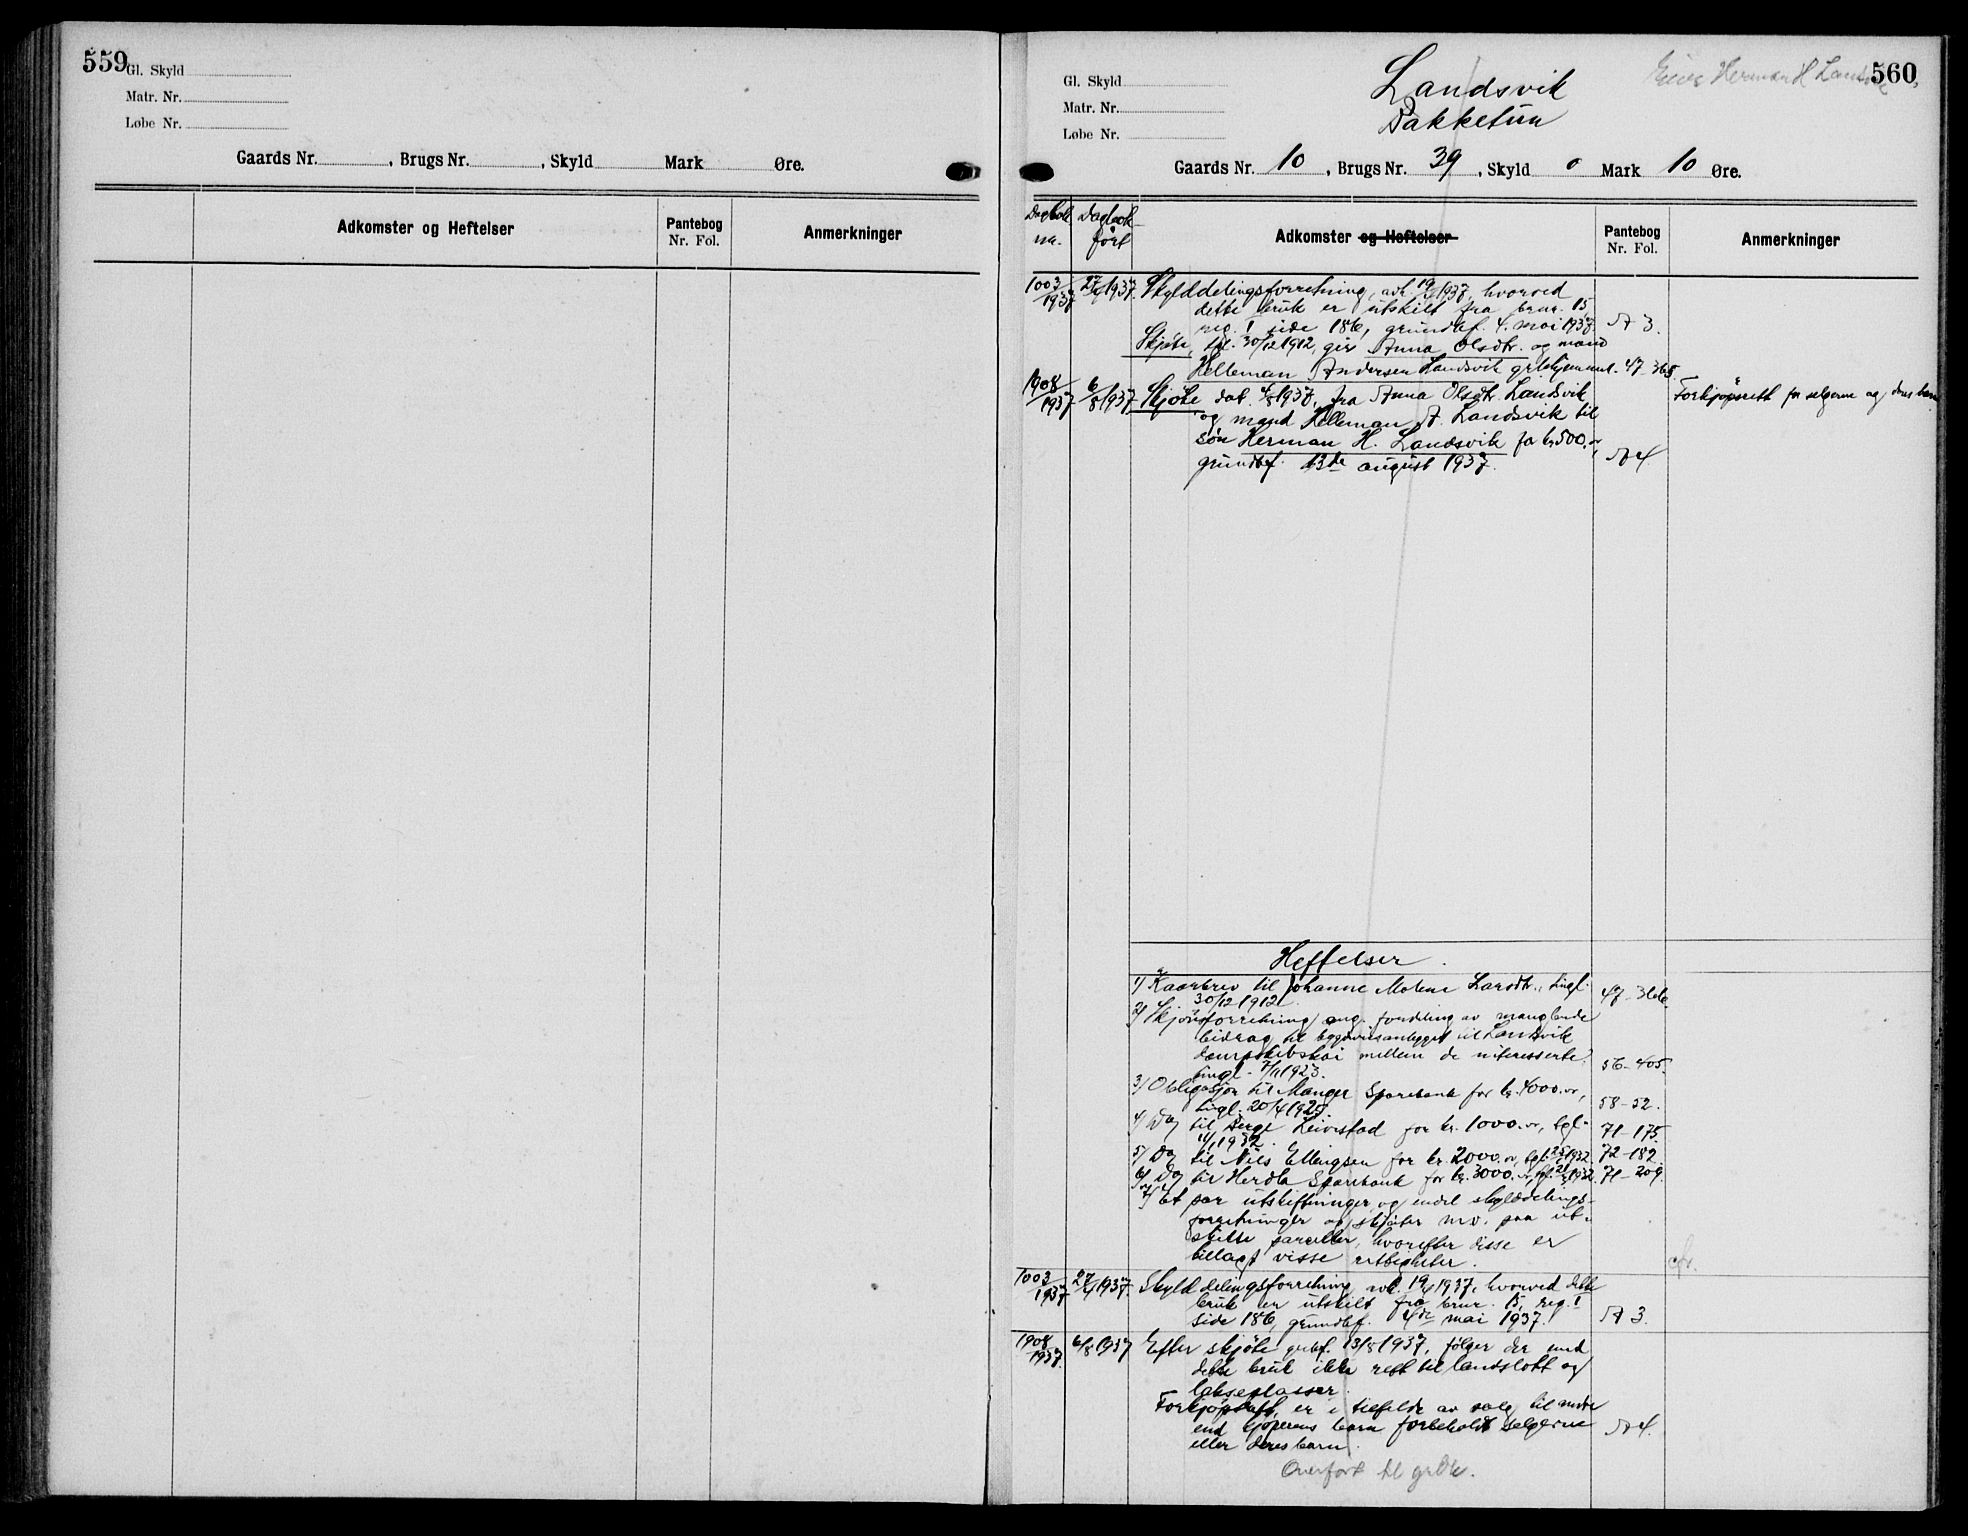 559
Gl. Skyld
Matr. Nr.
Løbe Nr.
Gaards Nr. , Brugs Nr. , Skyld Mark Øre.
Adkomster og Heftelser
Pantebog
Nr. Fol.
Anmerkninger
560
Herman H Landsvik
Gl. Skyld
Matr. Nr.
Løbe Nr.
Landsvik
Bakketun
Gaards Nr. 10 , Brugs Nr. 39 , Skyld 0 Mark 10 Øre.
Dagbok nr.
Dagbok ført
Adkomster og Heftelser
Pantebog
Nr. Fol.
Anmerkninger
1003/1937 27/4 1937. Skylddelingsforretning, avh. 19/4 1937, hvorved
dette bruk er utskilt fra brnr. 15,
reg. I side 186, grundbf. 4. mai 1937. A 3.
Skjøte, tgl. 30/12 1912, gir Anna Olsdtr. og mand
Helleman Andersen Landsvik grbhjemmel. 47-365.
1908/1937 6/8 1937 Skjøte dat. 4/8 1937, fra Anna Olsdtr. Landsvik Forkjøpsrett for selgerne og deres barn
og mand Helleman A. Landsvik til
søn Herman H. Landsvik for kr. 500.-,
grundbf. 13de august 1937. A 4.
Heftelser.
1/ Kaarbrev til Johanne Malene Larsdtr., tingl.
30/12 1912. 47-366
2/ Skjønsforretning ang. fordeling av manglende
bidrag til bygdeveisanlegget til Landsvik
dampskibskai mellem de interesserte,
tingl. 7/11 1923. 56-405.
3/ Obligasjon til Manger Sparebank for kr. 4000.-,
tingl. 20/4 1925. 58-52.
4/ Do til Berge Leivestad for kr. 1000.-, tgl.
11/1 1932. 71-175.
5/ Do til Nils Ellingsen for kr. 2000.-, tgl. 1932. 72-182.
6/ Do til Herdla Sparebank for kr. 3000.-, tgl. 1932. 71-209.
7/ Et par utskiftninger og endel skylddelings-
forretninger og skjøter m.v. paa ut-
skilte parceller, hvorefter disse er
tillagt visse rettigheter. cfr.
1003/1937 27/4 1937. Skylddelingsforretning, avh. 19/4 1937, hvorved dette
bruk er utskilt fra brnr. 15, reg. I
side 186, grundbf. 4de mai 1937. A 3.
1908/1937. 6/8 1937 Efter skjøte grbf. 13/8 1937, følger der med
dette bruk ikke rett til landslott og
lakseplasser.
Forkjøpsrett er i tilfelde av salg til andre
end kjøperens barn forbeholdt selgerne
eller deres barn. A 4.
Overført til grbk.